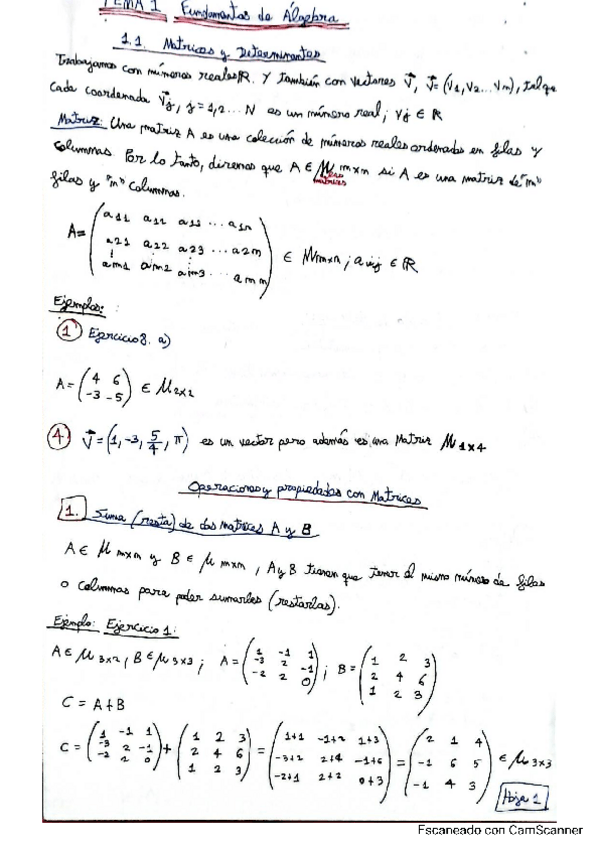 TEMA 1 Fundamentos de Álgebra
1.1. Matrices y Determinantes
Trabajamos con números reales ℝ. Y también con vectores v⃗, v⃗=(v1,v2...vm), tal que
cada coordenada v⃗j, j=1,2... N es un número real; vj ∈ ℝ
Matriz: Una matriz A es una colección de números reales ordenados en filas y
columnas. Por lo tanto, diremos que A ∈ M mxn si A es una matriz de "m"
matrices
filas y "n" columnas.
a11 a12 a13 ... a1n
A= a21 a22 a23 ... a2n ∈ Mmxn; aij ∈ ℝ
am1 am2 am3 ... amn
Ejemplos:
1 Ejercicio 8. a)
A = (4 6
-3 -5) ∈ M2x2
4. v⃗ = (1, -3, 5/4, π) es un vector pero además es una Matriz M1x4
Operaciones y propiedades con Matrices
1. Suma (resta) de dos matrices A y B
A ∈ M mxn y B ∈ M mxn, A y B tienen que tener el mismo número de filas
o columnas para poder sumarles (restarlas).
Ejemplo: Ejercicio 1:
A ∈ M3x2, B ∈ M3x3; A = (1 -1 1
-3 2 -1
-2 2 0); B = (1 2 3
2 4 6
1 2 3)
C = A+B
C = (1 -1 1
-3 2 -1
-2 2 0) + (1 2 3
2 4 6
1 2 3) = (1+1 -1+2 1+3
-3+2 2+4 -1+6
-2+1 2+2 0+3) = (2 1 4
-1 6 5
-1 4 3) ∈ M3x3
Hoja 1
Escaneado con CamScanner